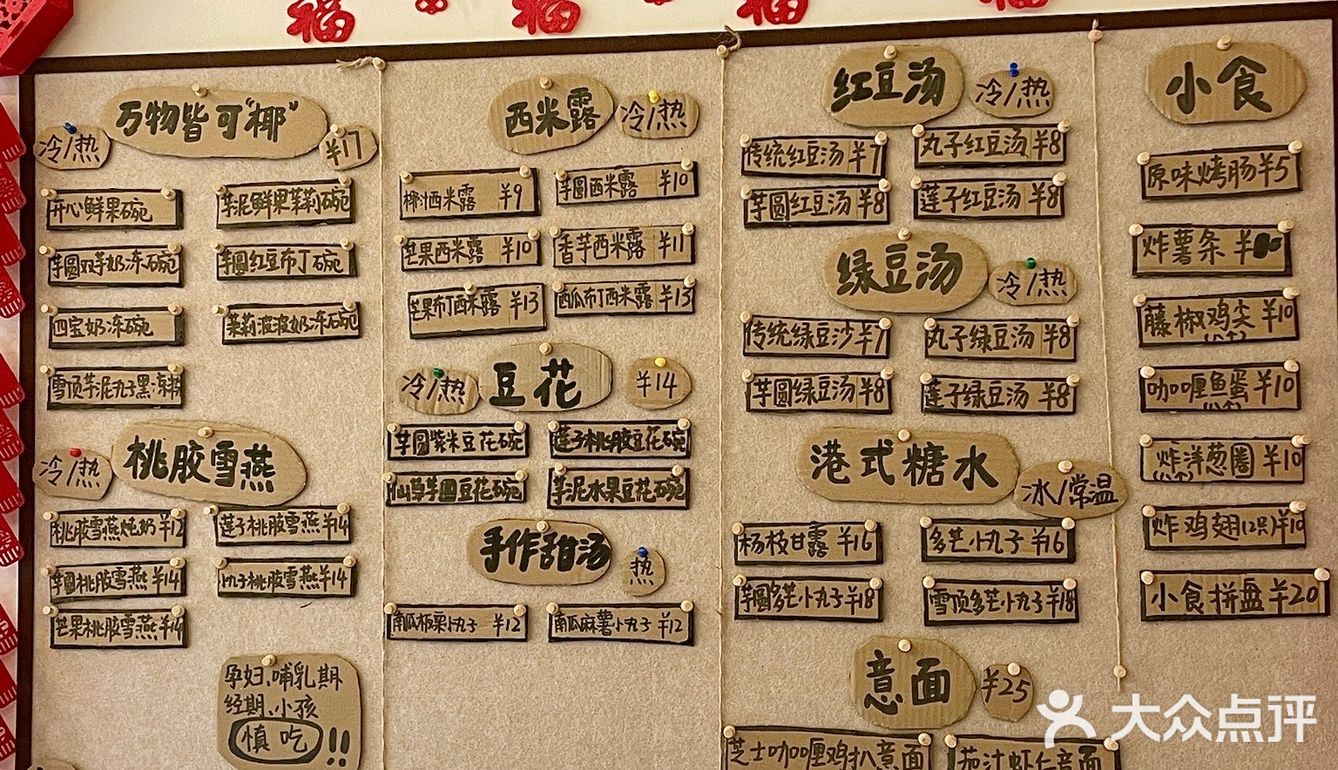 福
福
福
福
万物皆可"椰"
冷/热
¥17
开心鲜果碗
芋泥鲜果茉莉碗
芋圆双芋奶冻碗
芋圆红豆布丁碗
四宝奶冻碗
茉莉波波奶冻碗
雪顶芋泥丸子黑凉粉
桃胶雪燕
冷/热
桃胶雪燕炖奶 ¥12
莲子桃胶雪燕 ¥14
芋圆桃胶雪燕 ¥14
小丸子桃胶雪燕 ¥14
芒果桃胶雪燕 ¥14
孕妇、哺乳期
经期、小孩
慎吃!!
西米露
冷/热
椰汁西米露 ¥9
芋圆西米露 ¥10
芒果西米露 ¥10
香芋西米露 ¥11
芒果布丁西米露 ¥13
西瓜布丁西米露 ¥13
冷/热
豆花
¥14
芋圆紫米豆花碗
莲子桃胶豆花碗
仙草芋圆豆花碗
芋泥水果豆花碗
手作甜汤
热
南瓜板栗小丸子 ¥12
南瓜麻薯小丸子 ¥12
红豆汤
冷/热
传统红豆汤 ¥7
丸子红豆汤 ¥8
芋圆红豆汤 ¥8
莲子红豆汤 ¥8
绿豆汤
冷/热
传统绿豆沙 ¥7
丸子绿豆汤 ¥8
芋圆绿豆汤 ¥8
莲子绿豆汤 ¥8
港式糖水
冰/常温
杨枝甘露 ¥16
多芒小丸子 ¥16
芋圆多芒小丸子 ¥18
雪顶多芒小丸子 ¥18
意面
¥25
芝士咖喱鸡扒意面
茄汁虾仁意面
小食
原味烤肠 ¥5
炸薯条 ¥
藤椒鸡尖 ¥10
咖喱鱼蛋 ¥10
炸洋葱圈 ¥10
炸鸡翅(2只) ¥10
小食拼盘 ¥20
大众点评